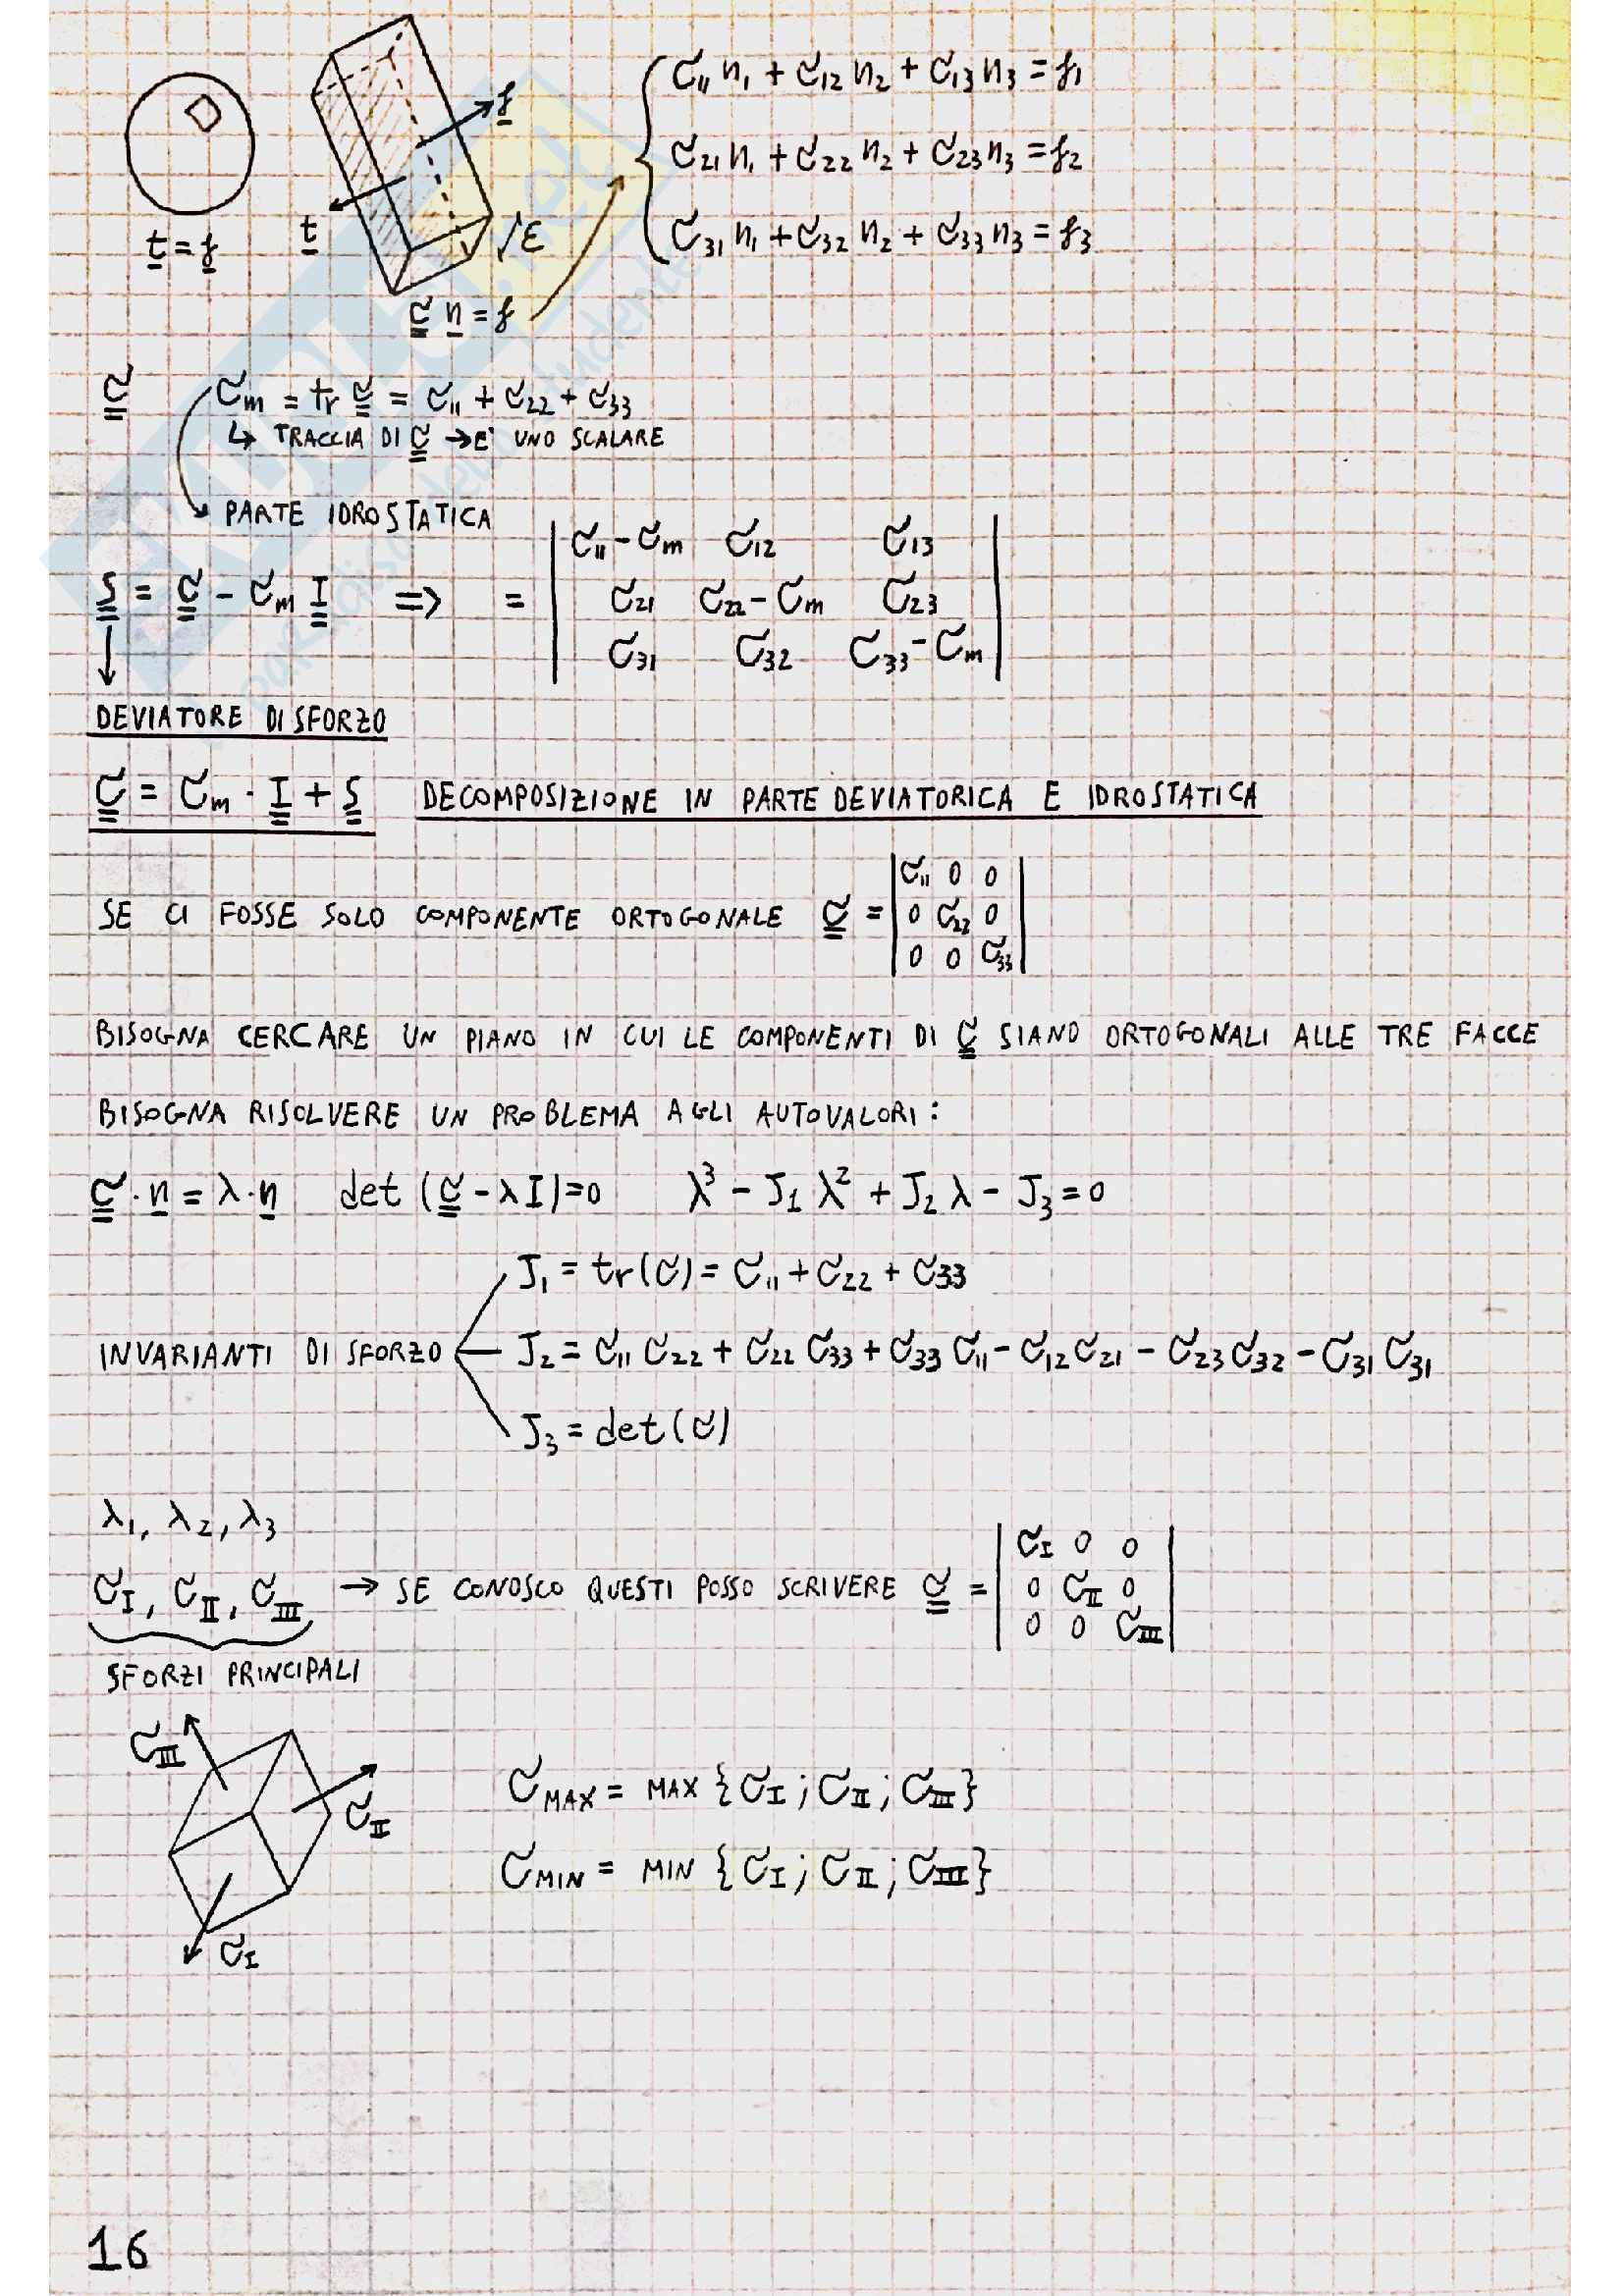 σ₁₁ n₁ + σ₁₂ n₂ + σ₁₃ n₃ = f₁
σ₂₁ n₁ + σ₂₂ n₂ + σ₂₃ n₃ = f₂
σ₃₁ n₁ + σ₃₂ n₂ + σ₃₃ n₃ = f₃
f
t
t = f
ε
σ n = f
σ
σm = tr σ = σ₁₁ + σ₂₂ + σ₃₃
↳ TRACCIA DI σ → E' UNO SCALARE
PARTE IDROSTATICA
S = σ - σm I => = | σ₁₁-σm σ₁₂ σ₁₃ |
| σ₂₁ σ₂₂-σm σ₂₃ |
| σ₃₁ σ₃₂ σ₃₃-σm |
DEVIATORE DI SFORZO
σ = σm · I + S DECOMPOSIZIONE IN PARTE DEVIATORICA E IDROSTATICA
SE CI FOSSE SOLO COMPONENTE ORTOGONALE σ = | σ₁₁ 0 0 |
| 0 σ₂₂ 0 |
| 0 0 σ₃₃ |
BISOGNA CERCARE UN PIANO IN CUI LE COMPONENTI DI σ SIANO ORTOGONALI ALLE TRE FACCE
BISOGNA RISOLVERE UN PROBLEMA AGLI AUTOVALORI:
σ · n = λ · n det (σ - λ I) = 0 λ³ - J₁ λ² + J₂ λ - J₃ = 0
J₁ = tr(σ) = σ₁₁ + σ₂₂ + σ₃₃
INVARIANTI DI SFORZO J₂ = σ₁₁ σ₂₂ + σ₂₂ σ₃₃ + σ₃₃ σ₁₁ - σ₁₂ σ₂₁ - σ₂₃ σ₃₂ - σ₃₁ σ₃₁
J₃ = det(σ)
λ₁, λ₂, λ₃
σI, σII, σIII → SE CONOSCO QUESTI POSSO SCRIVERE σ = | σI 0 0 |
| 0 σII 0 |
| 0 0 σIII |
SFORZI PRINCIPALI
σIII
σII
σI
σMAX = MAX {σI; σII; σIII}
σMIN = MIN {σI; σII; σIII}
16